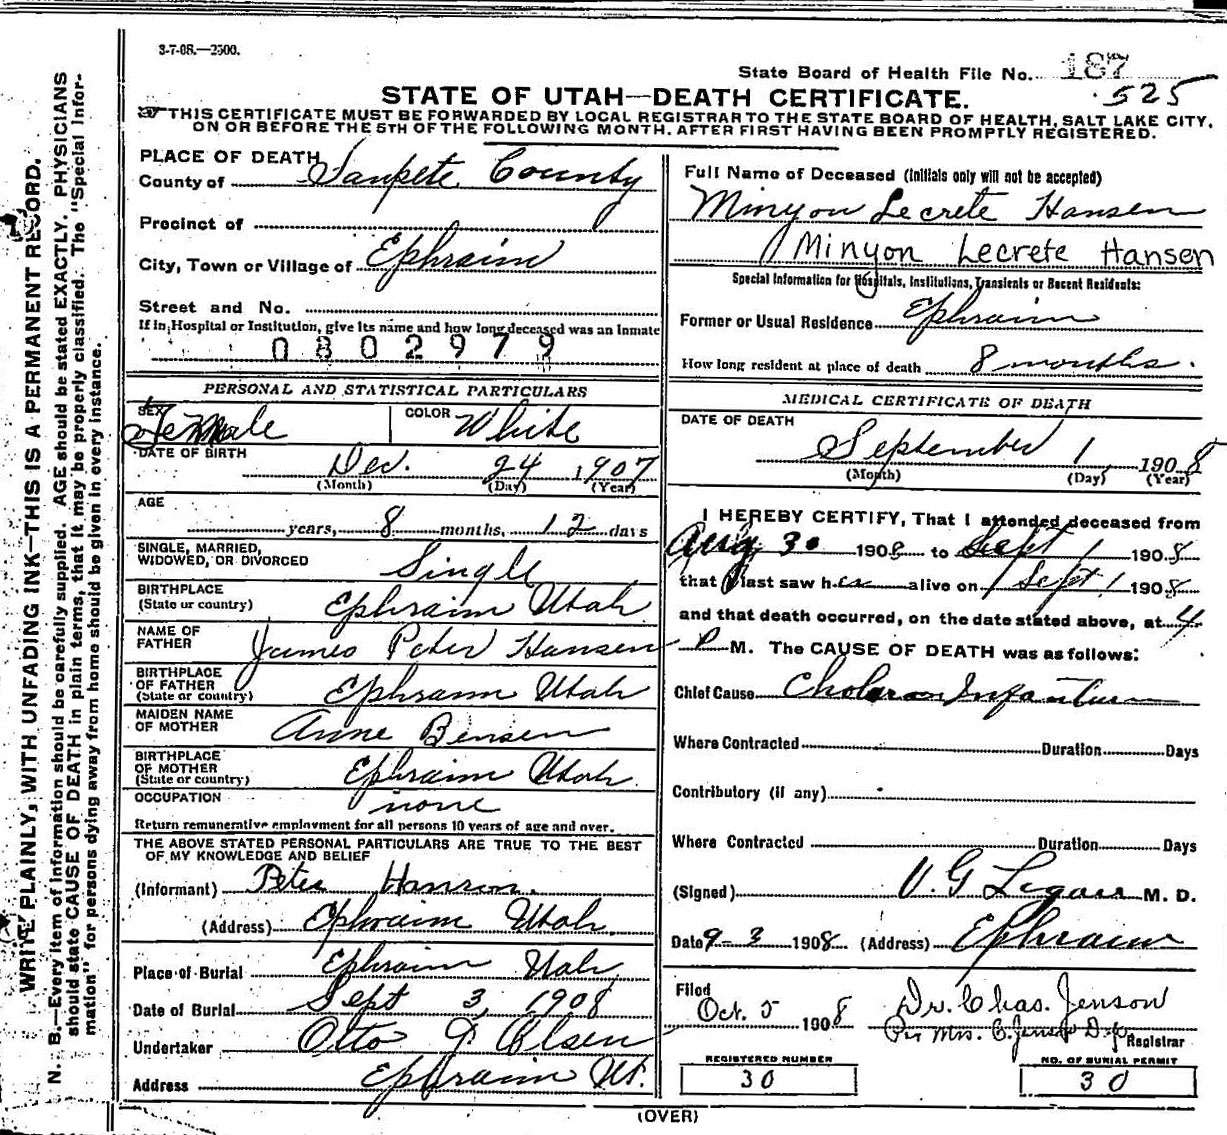 3-7-08.—2500.
State Board of Health File No. 187
525
STATE OF UTAH—DEATH CERTIFICATE.
THIS CERTIFICATE MUST BE FORWARDED BY LOCAL REGISTRAR TO THE STATE BOARD OF HEALTH, SALT LAKE CITY,
ON OR BEFORE THE 5TH OF THE FOLLOWING MONTH. AFTER FIRST HAVING BEEN PROMPTLY REGISTERED.
PLACE OF DEATH
County of Sanpete County
Precinct of
City, Town or Village of Ephraim
Street and No.
If in Hospital or Institution, give its name and how long deceased was an inmate
0802979
PERSONAL AND STATISTICAL PARTICULARS
SEX Female COLOR White
DATE OF BIRTH
Dec. 24 1907
(Month) (Day) (Year)
AGE
years, 8 months, 12 days
SINGLE, MARRIED,
WIDOWED, OR DIVORCED Single
BIRTHPLACE
(State or country) Ephraim Utah
NAME OF
FATHER James Peter Hansen
BIRTHPLACE
OF FATHER
(State or country) Ephraim Utah
MAIDEN NAME
OF MOTHER Anne Bensen
BIRTHPLACE
OF MOTHER
(State or country) Ephraim Utah.
OCCUPATION none
Return remunerative employment for all persons 10 years of age and over.
THE ABOVE STATED PERSONAL PARTICULARS ARE TRUE TO THE BEST
OF MY KNOWLEDGE AND BELIEF
(Informant) Peter Hanson.
(Address) Ephraim Utah.
Place of Burial Ephraim Utah,
Date of Burial Sept 3, 1908
Undertaker Otto Olsen
Address Ephraim Ut.
Full Name of Deceased (Initials only will not be accepted)
Minyon Lecrete Hansen
Minyon Lecrete Hansen
Special Information for Hospitals, Institutions, Transients or Recent Residents:
Former or Usual Residence Ephraim
How long resident at place of death 8 months.
MEDICAL CERTIFICATE OF DEATH
DATE OF DEATH
September 1 1908
(Month) (Day) (Year)
I HEREBY CERTIFY, That I attended deceased from
Aug 30 1908 to Sept 1 1908
that I last saw her alive on Sept 1 1908
and that death occurred, on the date stated above, at 4
P M. The CAUSE OF DEATH was as follows:
Chief Cause Cholera Infantum
Where Contracted Duration Days
Contributory (if any)
Where Contracted Duration Days
(Signed) M. D.
Date 9-3 1908 (Address) Ephraim
Filed
Oct. 5 1908 Dr. Chas. Jenson
Per Mrs. C. Jenson Dep Registrar
REGISTERED NUMBER
30
NO. OF BURIAL PERMIT
30
(OVER)
WRITE PLAINLY, WITH UNFADING INK—THIS IS A PERMANENT RECORD.
N. B.—Every item of information should be carefully supplied. AGE should be stated EXACTLY. PHYSICIANS
should state CAUSE OF DEATH in plain terms, that it may be properly classified. The "Special Infor-
mation" for persons dying away from home should be given in every instance.